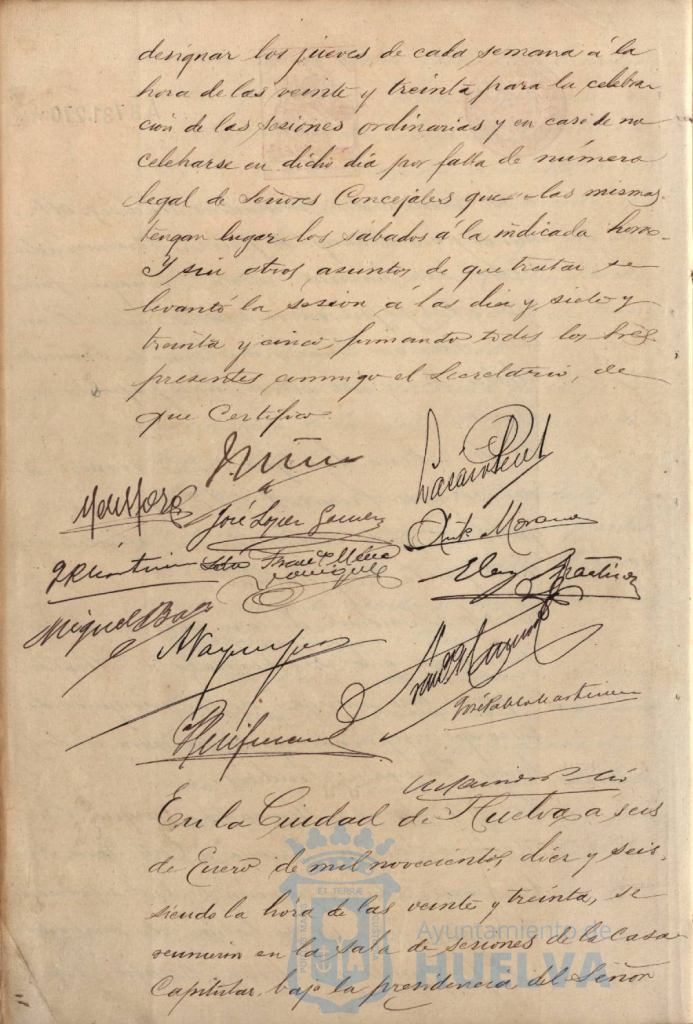 designar los jueves de cada semana á la
hora de las veinte y treinta para la celebra
cion de las sesiones ordinarias y en caso de no
celebrarse en dicho dia por falta de número
legal de Señores Concejales que las mismas
tengan lugar los sábados á la indicada hora.
Y sin otros asuntos de que tratar se
levantó la sesion á las diez y siete y
treinta y cinco, firmando todos los Sres.
presentes, conmigo el Secretario, de
que Certifico
José Lopez Gomez
Antº Moreno
Miguel Baa
José Pablo Martinez
En la Ciudad de Huelva á seis
de Enero de mil novecientos diez y seis,
siendo la hora de las veinte y treinta, se
reunieron en la sala de sesiones de la Casa
Capitular, bajo la presidencia del Señor
Ayuntamiento de
HUELVA